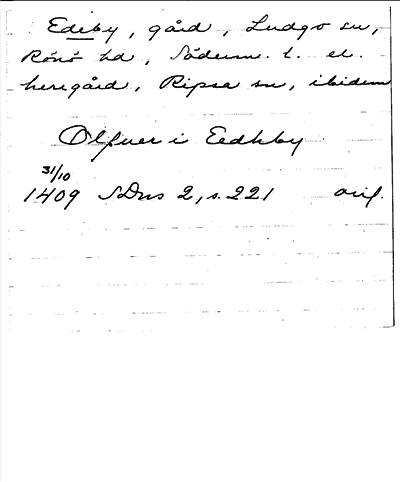 Edeby, gård, Ludgo sn,
Rönö hd, Söderm. l. el.
herrgård, Ripsa sn, ibidem
Olfuer i Eedhby
31/10
1409 SDns 2, s. 221 orig.